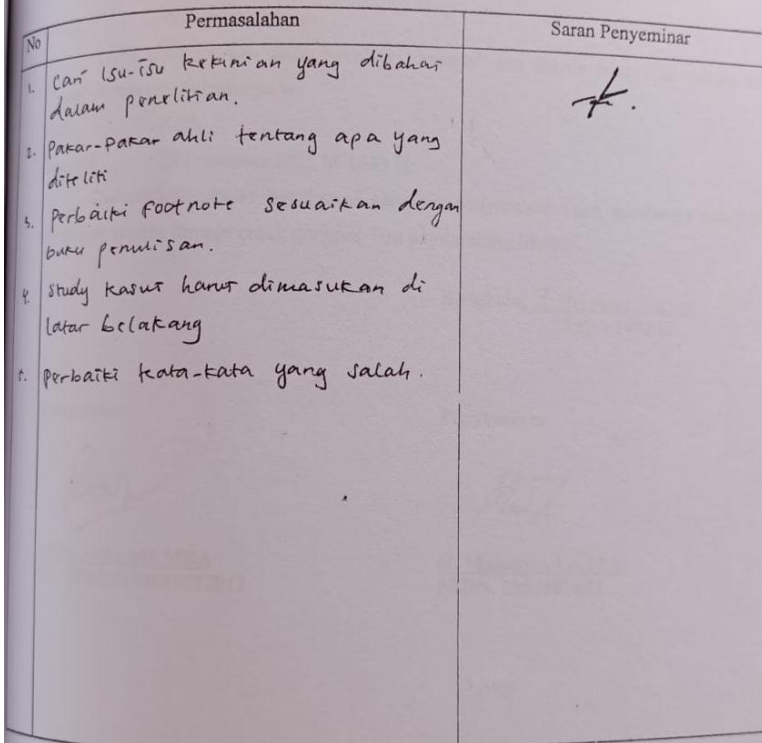 No Permasalahan Saran Penyeminar
1. Cari isu-isu kekinian yang dibahas
dalam penelitian.
2. Pakar-Pakar ahli tentang apa yang
diteliti
3. Perbaiki footnote sesuaikan dengan
buku penulisan.
4. Study kasus harus dimasukan di
latar belakang
5. Perbaiki kata-kata yang salah.